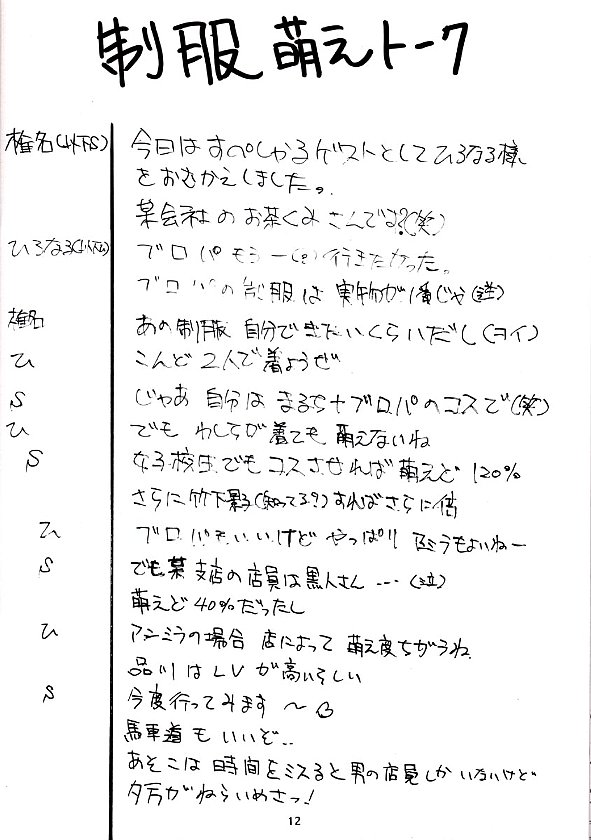 制服 萌えトーク
椎名(以下S) 今日は すぺしゃるゲストとして ひろなる様
をおむかえしました。
某会社 の お茶くみ さんです?(笑)
ひろなる(以下ひ) ブロパ もう一(?)行きたかった。
ブロパの制服は 実物が1番じゃ
椎名 あの制服 自分できたいくらいだし(ヨイ)
ひ こんど 2人で着ようぜ
S じゃあ 自分は まるち+ブロパのコスで(笑)
ひ でも わしらが着ても 萌えないね
S 女子校生でもコスさせれば萌えど 120%
さらに竹下 (知ってる?)すればさらに倍
ひ ブロパもいいけど やっぱり もよいねー
S でも某支店の店員は黒人さん…(泣)
萌えど40%だったし
ひ アンミラの場合 店によって 萌え度ちがうね
品川はLVが高いらしい
S 今度行ってみます~
馬車道もいいぞ..
あそこは時間をミスると男の店員しかいないけど
夕方がねらいめさっ!
12